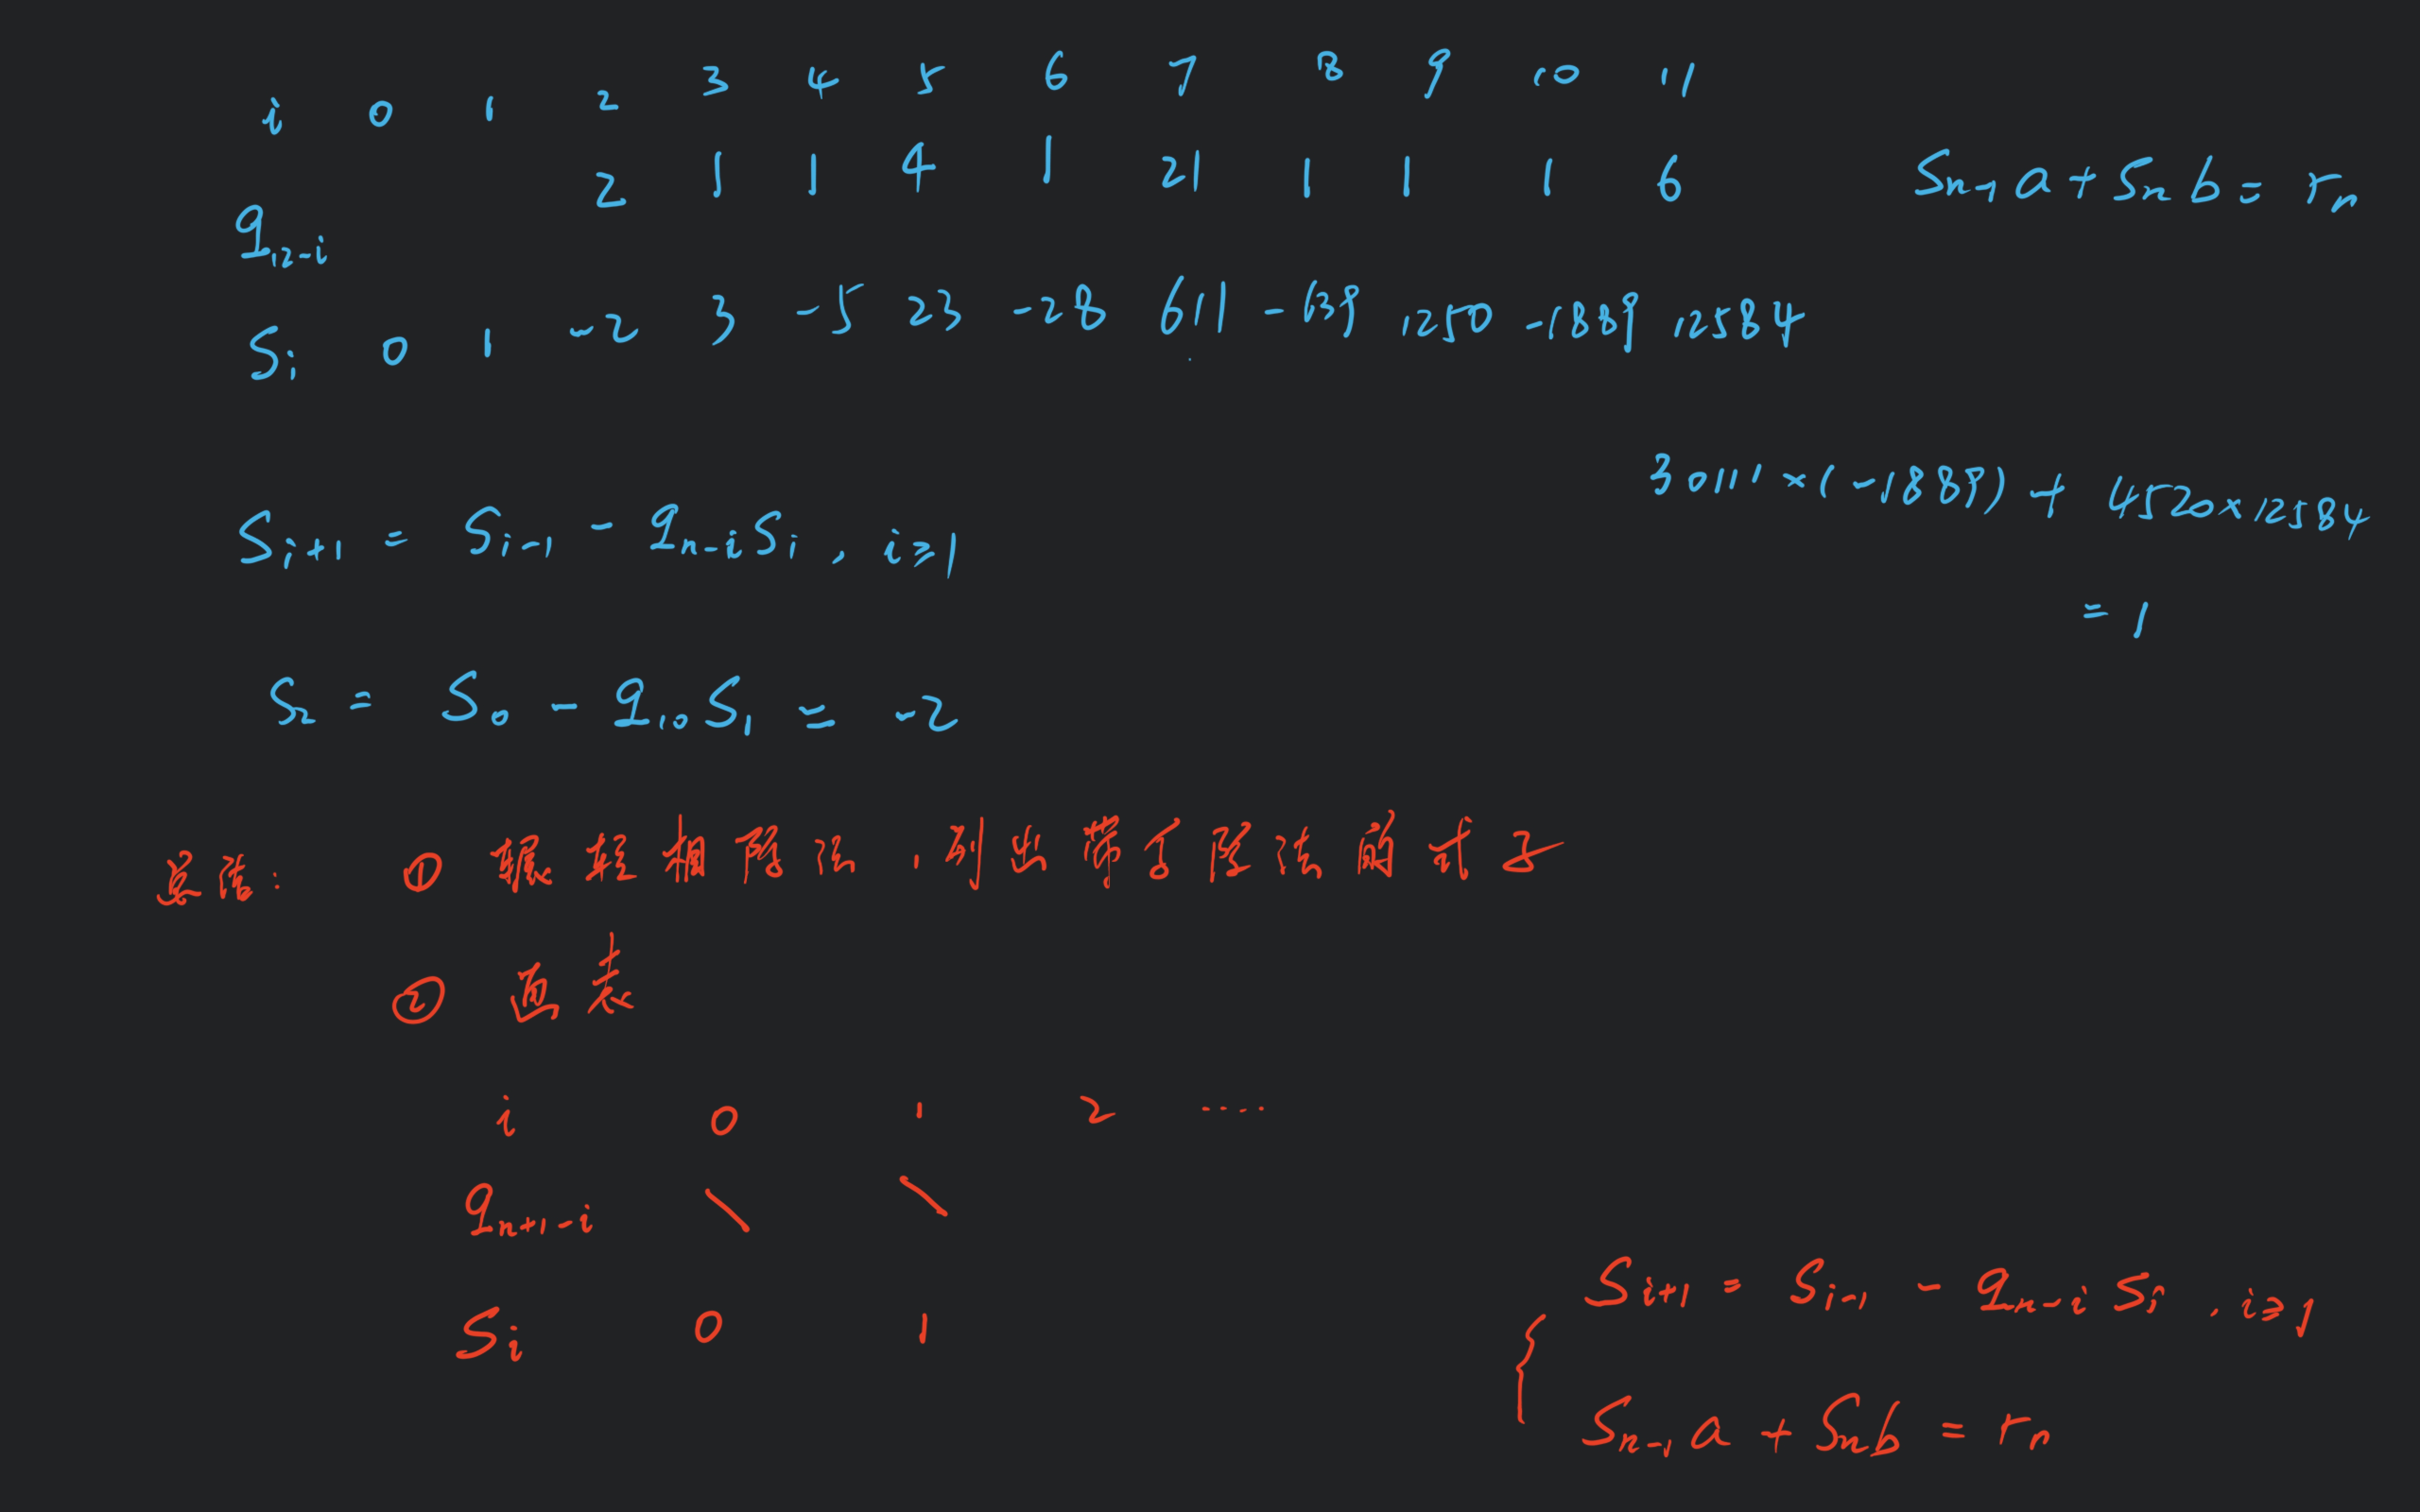 i 0 1 2 3 4 5 6 7 8 9 10 11
q₁₂₋ᵢ 2 1 1 4 1 21 1 1 1 6
Sₙ₋₁a + Sₙb = rₙ
Sᵢ 0 1 -2 3 -5 23 -28 611 -639 1250 -1889 12584
30111×(-1889) + 4520×12584
= 1
Sᵢ₊₁ = Sᵢ₋₁ - qₙ₋ᵢSᵢ , i≥1
S₂ = S₀ - q₁₀S₁ = -2
总结: ① 辗转相除法,列出带余除法的式子
② 画表
i 0 1 2 ....
qₙ₊₁₋ᵢ \ \
Sᵢ 0 1
{ Sᵢ₊₁ = Sᵢ₋₁ - qₙ₋ᵢSᵢ , i≥1
Sₙ₋₁a + Sₙb = rₙ